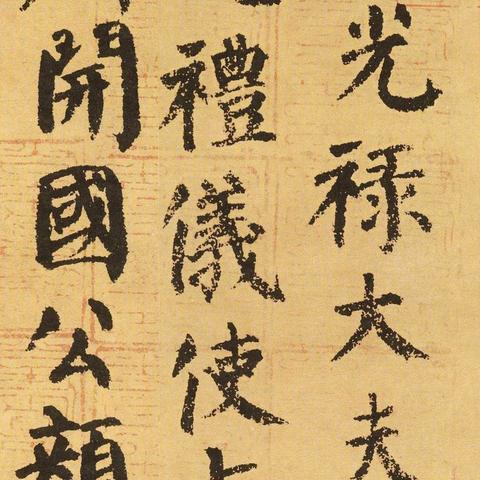 光祿大夫
禮儀使上
開國公顏